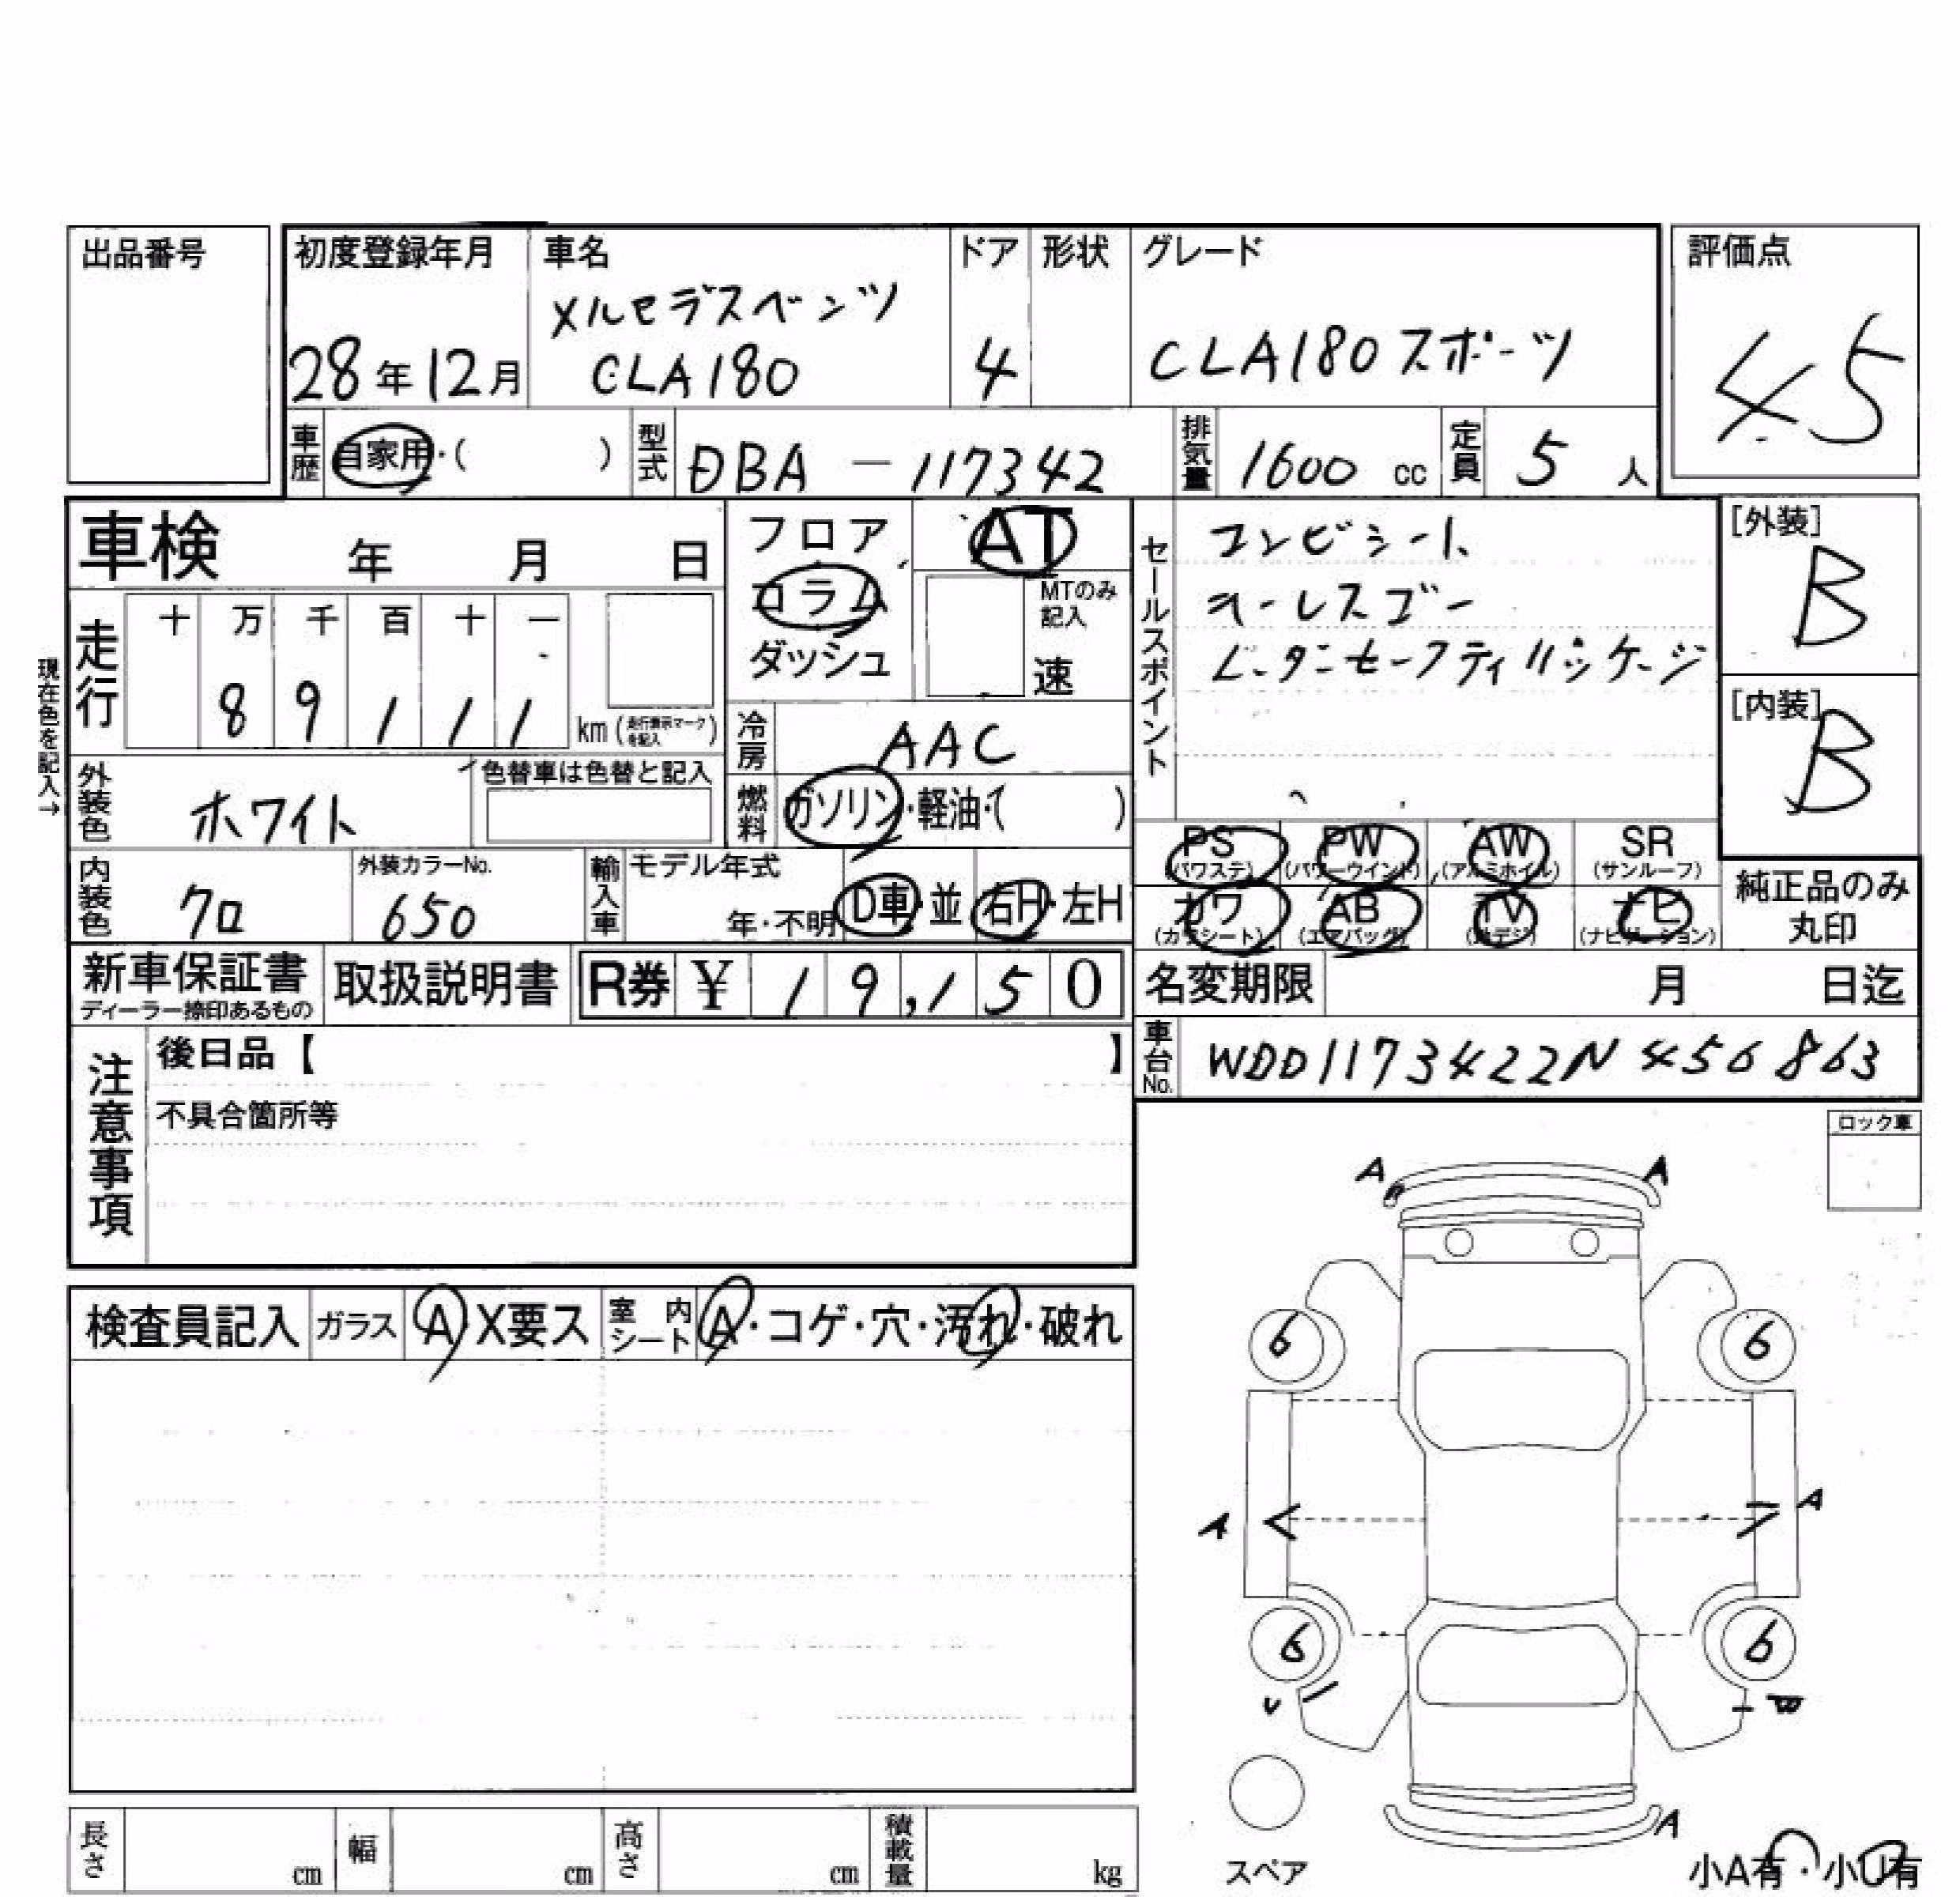 出品番号
初度登録年月 車名 ドア 形状 グレード 評価点
メルセデスベンツ
28年12月 CLA180 4 CLA180スポーツ 4.5
車歴 自家用・( ) 型式 DBA-117342 排気量 1600 cc 定員 5 人
車検 年 月 日
フロア AT
コラム MTのみ記入
ダッシュ 速
現在色を記入→
走行 十 万 千 百 十 一
8 9 1 1 1 km (走行表示マークを記入)
冷房 AAC
外装色 ホワイト 色替車は色替と記入
燃料 ガソリン・軽油・( )
内装色 クロ 外装カラーNo. 650 輸入車 モデル年式 年・不明 D車・並 右H・左H
セールスポイント
コンビシート
キーレスゴー
レーダーセーフティパッケージ
[外装] B
[内装] B
PS (パワステ) PW (パワーウインド) AW (アルミホイル) SR (サンルーフ)
カワ (カワシート) AB (エアバッグ) TV (地デジ) ナビ (ナビゲーション)
純正品のみ丸印
新車保証書 ディーラー捺印あるもの 取扱説明書 R券 ¥ 1 9,1 5 0
名変期限 月 日迄
車台No. WDD1173422N456863
注意事項
後日品【 】
不具合箇所等
ロック車
検査員記入 ガラス A・X要ス 室内シート A・コゲ・穴・汚れ・破れ
A A
6 6
A A
6 6
A
スペア
小A有・小U有
長さ cm 幅 cm 高さ cm 積載量 kg